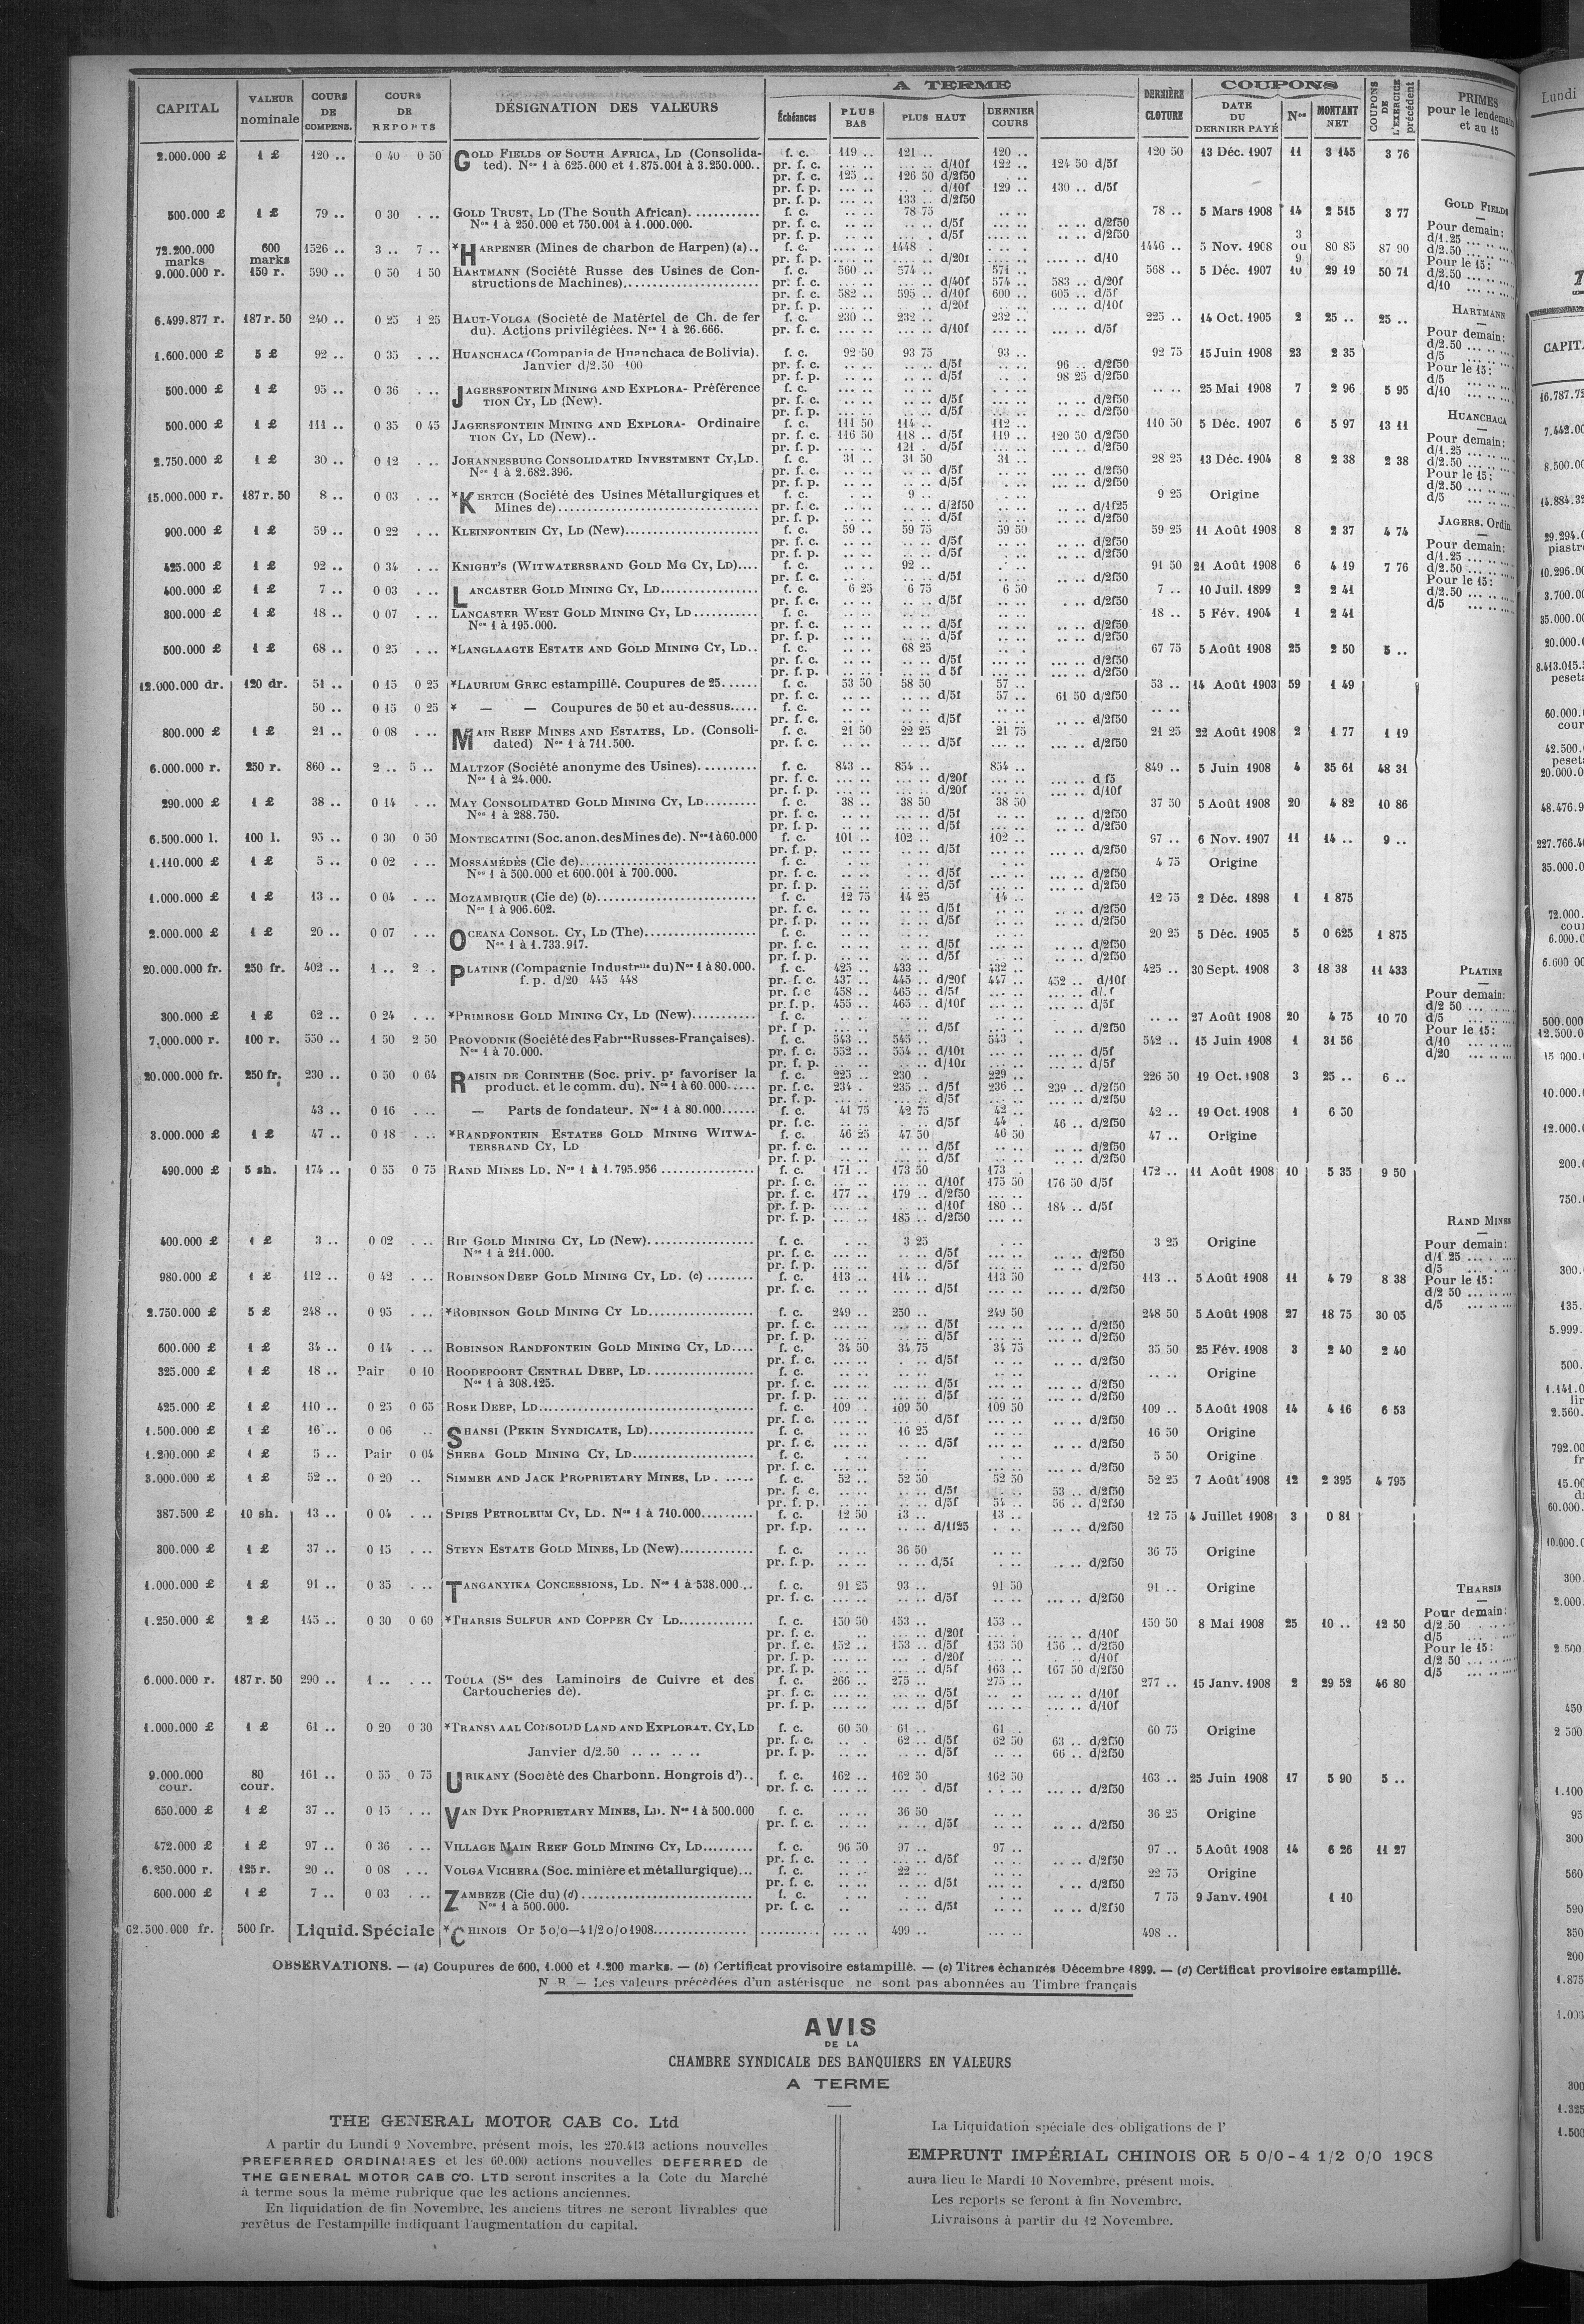 CAPITAL | VALEUR nominale | COURS DE COMPENS. | COURS DE REPORTS | DÉSIGNATION DES VALEURS | A TERME | Échéances | PLUS BAS | PLUS HAUT | DERNIER COURS | DERNIÈRE CLOTURE | COUPONS | DATE DU DERNIER PAYÉ | Nos | MONTANT NET | COUPONS DE L'EXERCICE précédent | PRIMES pour le lendemain et au 15
2.000.000 £ 1 £ 120 .. 0 40 0 50 GOLD FIELDS OF SOUTH AFRICA, LD (Consolida- f. c. 119 .. 121 .. 120 .. 120 50 13 Déc. 1907 11 3 145 3 76
ted). Nos 1 à 625.000 et 1.875.001 à 3.250.000.. pr. f. c. .... .. d/10f 122 .. 124 50 d/5f
pr. f. c. 125 .. 126 50 d/2f50
pr. f. p. .... .. d/10f 129 .. 130 .. d/5f
pr. f. p. .... 133 .. d/2f50
500.000 £ 1 £ 79 .. 0 30 . .. GOLD TRUST, LD (The South African). f. c. 78 75 78 .. 5 Mars 1908 14 2 515 3 77
Nos 1 à 250.000 et 750.001 à 1.000.000. pr. f. c. d/5f d/2f50
pr. f. p. d/5f d/2f50
72.200.000 marks 600 marks 1526 .. 3 .. 7 .. *HARPENER (Mines de charbon de Harpen) (a).. f. c. 1448 .. 1446 .. 5 Nov. 1908 3 ou 9 80 85 87 90
pr. f. p. d/20f d/10
9.000.000 r. 150 r. 590 .. 0 50 1 50 HARTMANN (Société Russe des Usines de Con- f. c. 560 .. 574 .. 571 .. 568 .. 5 Déc. 1907 10 29 19 50 71
structions de Machines) pr. f. c. d/40f 574 .. 583 .. d/20f
pr. f. c. 582 .. 595 .. d/10f 600 .. 605 .. d/5f
pr. f. p. d/20f d/10f
6.499.877 r. 187 r. 50 240 .. 0 25 1 25 HAUT-VOLGA (Societé de Matériel de Ch. de fer f. c. 230 .. 232 .. 232 .. 225 .. 14 Oct. 1905 2 25 .. 25 ..
du). Actions privilégiées. Nos 1 à 26.666. pr. f. c. d/10f d/5f
1.600.000 £ 5 £ 92 .. 0 35 . .. HUANCHACA (Compania de Huanchaca de Bolivia). f. c. 92 50 93 75 93 .. 92 75 15 Juin 1908 23 2 35
Janvier d/2.50 100 pr. f. c. d/5f 96 .. d/2f50
pr. f. p. d/5f 98 25 d/2f50
500.000 £ 1 £ 95 .. 0 36 . .. JAGERSFONTEIN MINING AND EXPLORA- Préférence f. c. 25 Mai 1908 7 2 96 5 95
TION CY, LD (New). pr. f. c. d/5f d/2f50
pr. f. p. d/5f d/2f50
500.000 £ 1 £ 111 .. 0 35 0 45 JAGERSFONTEIN MINING AND EXPLORA- Ordinaire f. c. 111 50 114 .. 112 .. 110 50 5 Déc. 1907 6 5 97 13 11
TION CY, LD (New).. pr. f. c. 116 50 118 .. d/5f 119 .. 120 50 d/2f50
pr. f. p. 121 . d/5f d/2f50
2.750.000 £ 1 £ 30 .. 0 12 . .. JOHANNESBURG CONSOLIDATED INVESTMENT CY, LD. f. c. 31 .. 31 50 31 .. 28 25 13 Déc. 1904 8 2 38 2 38
Nos 1 à 2.682.396. pr. f. c. d/5f d/2f50
pr. f. p. d/5f d/2f50
15.000.000 r. 187 r. 50 8 .. 0 03 . .. *KERTCH (Société des Usines Métallurgiques et f. c. 9 .. 9 25 Origine
Mines de) pr. f. c. d/2f50 d/1f25
pr. f. p. d/5f d/2f50
900.000 £ 1 £ 59 .. 0 22 . .. KLEINFONTEIN CY, LD (New) f. c. 59 .. 59 75 59 50 59 25 11 Août 1908 8 2 37 4 74
pr. f. c. d/5f d/2f50
pr. f. p. d/5f d/2f50
425.000 £ 1 £ 92 .. 0 34 . .. KNIGHT'S (WITWATERSRAND GOLD MG CY, LD) f. c. 92 .. 91 50 21 Août 1908 6 4 19 7 76
pr. f. c. d/5f d/2f50
400.000 £ 1 £ 7 .. 0 03 . .. LANCASTER GOLD MINING CY, LD f. c. 6 25 6 75 6 50 7 .. 10 Juil. 1899 2 2 41
pr. f. c. d/5f d/2f50
300.000 £ 1 £ 18 .. 0 07 . .. LANCASTER WEST GOLD MINING CY, LD f. c. 18 .. 5 Fév. 1904 1 2 41
Nos 1 à 195.000. pr. f. c. d/5f d/2f50
pr. f. p. d/5f d/2f50
500.000 £ 1 £ 68 .. 0 25 . .. *LANGLAAGTE ESTATE AND GOLD MINING CY, LD.. f. c. 68 25 67 75 5 Août 1908 25 2 50 5 ..
pr. f. c. d/5f d/2f50
pr. f. p. d 5f d/2f50
12.000.000 dr. 120 dr. 51 .. 0 15 0 25 *LAURIUM GREC estampillé. Coupures de 25 f. c. 53 50 58 50 57 .. 53 .. 14 Août 1903 59 1 49
pr. f. c. d/5f 57 .. 61 50 d/2f50
50 .. 0 15 0 25 * — — Coupures de 50 et au-dessus f. c.
pr. f. c. d/5f d/2f50
800.000 £ 1 £ 21 .. 0 08 . .. MAIN REEF MINES AND ESTATES, LD. (Consoli- f. c. 21 50 22 25 21 75 21 25 22 Août 1908 2 1 77 1 19
dated) Nos 1 à 711.500. pr. f. c. d/5f d/2f50
6.000.000 r. 250 r. 860 .. 2 .. 5 .. MALTZOF (Société anonyme des Usines) f. c. 843 .. 854 .. 854 .. 849 .. 5 Juin 1908 4 35 61 48 31
Nos 1 à 24.000. pr. f. c. d/20f d f5
pr. f. p. d/20f d/10f
290.000 £ 1 £ 38 .. 0 14 . .. MAY CONSOLIDATED GOLD MINING CY, LD f. c. 38 .. 38 50 38 50 37 50 5 Août 1908 20 4 82 10 86
Nos 1 à 288.750. pr. f. c. d/5f d/2f50
pr. f. p. d/5f d/2f50
6.500.000 l. 100 l. 95 .. 0 30 0 50 MONTECATINI (Soc. anon. des Mines de). Nos 1 à 60.000 f. c. 101 .. 102 .. 102 .. 97 .. 6 Nov. 1907 11 14 .. 9 ..
pr. f. p. d/5f d/2f50
1.110.000 £ 1 £ 5 .. 0 02 . .. MOSSAMÉDÈS (Cie de) f. c. 4 75 Origine
Nos 1 à 500.000 et 600.001 à 700.000. pr. f. c. d/5f d/2f50
pr. f. p. d/5f d/2f50
1.000.000 £ 1 £ 13 .. 0 04 . .. MOZAMBIQUE (Cie de) (b) f. c. 12 75 14 25 14 .. 12 75 2 Déc. 1898 1 1 875
Nos 1 à 906.602. pr. f. c. d/5f d/2f50
pr. f. p. d/5f d/2f50
2.000.000 £ 1 £ 20 .. 0 07 . .. OCEANA CONSOL. CY, LD (The) f. c. 20 25 5 Déc. 1905 5 0 625 1 875
Nos 1 à 1.733.917. pr. f. c. d/5f d/2f50
pr. f. p. d/5f d/2f50
20.000.000 fr. 250 fr. 402 .. 1 .. 2 . PLATINE (Compagnie Industrlle du) Nos 1 à 80.000. f. c. 425 .. 433 .. 432 .. 425 .. 30 Sept. 1908 3 18 38 11 433
f. p. d/20 445 448 pr. f. c. 437 .. 445 .. d/20f 447 .. 452 .. d/10f
pr. f. c 458 .. 465 .. d/5f
pr. f. p. 455 .. 465 .. d/10f d/5f
300.000 £ 1 £ 62 .. 0 24 . .. *PRIMROSE GOLD MINING CY, LD (New) f. c. 27 Août 1908 20 4 75 10 70
pr. f p. d/5f d/2f50
7.000.000 r. 100 r. 550 .. 1 50 2 50 PROVODNIK (Société des Fabres Russes-Françaises). f. c. 543 .. 545 .. 543 . 542 .. 15 Juin 1908 1 31 56
Nos 1 à 70.000. pr. f. c. 552 .. 554 .. d/10f d/5f
pr. f. p. d/10f d/5f
20.000.000 fr. 250 fr. 230 .. 0 50 0 64 RAISIN DE CORINTHE (Soc. priv. pr favoriser la f. c. 225 .. 230 . 229 .. 226 50 19 Oct. 1908 3 25 .. 6 ..
product. et le comm. du). Nos 1 à 60.000 pr. f. c. 234 . 235 .. d/5f 236 .. 239 .. d/2f50
pr. f. p. d/5f d/2f50
43 .. 0 16 . .. — Parts de fondateur. Nos 1 à 80.000 f. c. 41 75 42 75 42 .. 42 .. 19 Oct. 1908 1 6 50
pr. f.c. d/5f 44 . 46 .. d/2f50
3.000.000 £ 1 £ 47 .. 0 18 . .. *RANDFONTEIN ESTATES GOLD MINING WITWA- f. c. 46 25 47 50 46 50 47 .. Origine
TERSRAND CY, LD pr. f. c. d/5f d/2f50
pr. f. p. d/5f d/2f50
490.000 £ 5 sh. 174 .. 0 55 0 75 RAND MINES LD. Nos 1 à 1.795.956 f. c. 171 .. 173 50 173 . 172 .. 11 Août 1908 10 5 35 9 50
pr. f. c. d/10f 175 50 176 50 d/5f
pr. f. c. 177 .. 179 .. d/2f50
pr. f. p. d/10f 180 .. 184 .. d/5f
pr. f. p. 185 .. d/2f50
400.000 £ 1 £ 3 .. 0 02 . .. RIP GOLD MINING CY, LD (New) f. c. 3 25 3 25 Origine
Nos 1 à 211.000. pr. f. c. d/5f d/2f50
pr. f. p. d/5f d/2f50
980.000 £ 1 £ 112 .. 0 42 . .. ROBINSON DEEP GOLD MINING CY, LD. (c) f. c. 113 .. 114 .. 113 50 113 .. 5 Août 1908 11 4 79 8 38
pr. f. c. d/5f d/2f50
2.750.000 £ 5 £ 248 .. 0 95 . .. *ROBINSON GOLD MINING CY LD f. c. 249 .. 250 .. 249 50 248 50 5 Août 1908 27 18 75 30 05
pr. f. c. d/5f d/2f50
pr. f. p. d/5f d/2f50
600.000 £ 1 £ 34 .. 0 14 . .. ROBINSON RANDFONTEIN GOLD MINING CY, LD f. c. 34 50 34 75 34 75 35 50 25 Fév. 1908 3 2 40 2 40
pr. f. c. d/5f d/2f50
325.000 £ 1 £ 18 .. Pair 0 10 ROODEPOORT CENTRAL DEEP, LD f. c. Origine
Nos 1 à 308.125. pr. f. c. d/5f d/2f50
pr. f. p. d/5f d/2f50
425.000 £ 1 £ 110 .. 0 25 0 65 ROSE DEEP, LD f. c. 109 . 109 50 109 50 109 .. 5 Août 1908 14 4 16 6 53
pr. f. c. d/5f d/2f50
1.500.000 £ 1 £ 16 .. 0 06 .. SHANSI (PEKIN SYNDICATE, LD) f. c. 16 25 16 50 Origine
pr. f. c. d/5f d/2f50
1.200.000 £ 1 £ 5 .. Pair 0 04 SHEBA GOLD MINING CY, LD f. c. 5 50 Origine
pr. f. c. d/2f50
3.000.000 £ 1 £ 52 .. 0 20 .. SIMMER AND JACK PROPRIETARY MINES, LD f. c. 52 .. 52 50 52 50 52 25 7 Août 1908 12 2 395 4 795
pr. f. c. d/5f 53 .. d/2f50
pr. f. p. d/5f 54 .. 56 .. d/2f50
387.500 £ 10 sh. 13 .. 0 04 . .. SPIES PETROLEUM CY, LD. Nos 1 à 710.000 f. c. 12 50 13 .. 13 .. 12 75 4 Juillet 1908 3 0 81
pr. f.p. d/1f25 d/2f50
300.000 £ 1 £ 37 .. 0 15 . .. STEYN ESTATE GOLD MINES, LD (New) f. c. 36 50 36 75 Origine
pr. f. p. d/5f d/2f50
1.000.000 £ 1 £ 91 .. 0 35 . .. TANGANYIKA CONCESSIONS, LD. Nos 1 à 538.000 f. c. 91 25 93 .. 91 50 91 .. Origine
pr. f. c. d/5f d/2f50
1.250.000 £ 2 £ 145 .. 0 30 0 60 *THARSIS SULFUR AND COPPER CY LD f. c. 150 50 153 .. 153 .. 150 50 8 Mai 1908 25 10 .. 12 50
pr. f. c. d/20f d/10f
pr. f. c. 152 .. 153 .. d/5f 153 50 156 .. d/2f50
pr. f. p. d/20f d/10f
pr. f. p. d/5f 163 .. 167 50 d/2f50
6.000.000 r. 187 r. 50 290 .. 1 .. . .. TOULA (Sté des Laminoirs de Cuivre et des f. c. 266 .. 275 .. 275 .. 277 .. 15 Janv. 1908 2 29 52 46 80
Cartoucheries de). pr. f. c. d/5f d/10f
pr. f. p. d/5f d/10f
1.000.000 £ 1 £ 61 .. 0 20 0 30 *TRANSVAAL CONSOLID LAND AND EXPLORAT. CY, LD f. c. 60 50 61 .. 61 . 60 75 Origine
pr. f. c. 62 .. d/5f 62 50 63 .. d/2f50
Janvier d/2.50 .. .. .. .. pr. f. p. d/5f 66 .. d/2f50
9.000.000 cour. 80 cour. 161 .. 0 55 0 75 URIKANY (Société des Charbonn. Hongrois d').. f. c. 162 .. 162 50 162 50 163 .. 25 Juin 1908 17 5 90 5 ..
pr. f. c. d/5f d/2f50
650.000 £ 1 £ 37 .. 0 15 . .. VAN DYK PROPRIETARY MINES, LD. Nos 1 à 500.000 f. c. 36 50 36 25 Origine
pr. f. c. d/5f d/2f50
472.000 £ 1 £ 97 .. 0 36 . .. VILLAGE MAIN REEF GOLD MINING CY, LD f. c. 96 50 97 .. 97 .. 97 .. 5 Août 1908 14 6 26 11 27
pr. f. c. d/5f d/2f50
6.250.000 r. 125 r. 20 .. 0 08 . .. VOLGA VICHERA (Soc. minière et métallurgique) f. c. 22 .. 22 75 Origine
pr. f. c. d/5f d/2f50
600.000 £ 1 £ 7 .. 0 03 . .. ZAMBEZE (Cie du) (d) f. c. 7 75 9 Janv. 1901 1 10
Nos 1 à 500.000. pr. f. c. d/5f d/2f50
62.500.000 fr. 500 fr. Liquid. Spéciale *CHINOIS Or 5 o/o—4 1/2 o/o 1908 499 .. 498 ..
GOLD FIELDS
Pour demain:
d/1.25
d/2.50
Pour le 15:
d/2.50
d/10
HARTMANN
Pour demain:
d/2.50
d/5
Pour le 15:
d/5
d/10
HUANCHACA
Pour demain:
d/1.25
d/2.50
Pour le 15:
d/2.50
d/5
JAGERS. Ordin.
Pour demain:
d/1.25
d/2.50
Pour le 15:
d/2.50
d/5
PLATINE
Pour demain:
d/2 50
d/5
Pour le 15:
d/10
d/20
RAND MINES
Pour demain:
d/1 25
d/5
Pour le 15:
d/2 50
d/5
THARSIS
Pour demain:
d/2 50
d/5
Pour le 15:
d/2 50
d/5
OBSERVATIONS. — (a) Coupures de 600, 1.000 et 1.200 marks. — (b) Certificat provisoire estampillé. — (c) Titres échangés Décembre 1899. — (d) Certificat provisoire estampillé.
N B — Les valeurs précédées d'un astérisque ne sont pas abonnées au Timbre français
AVIS
DE LA
CHAMBRE SYNDICALE DES BANQUIERS EN VALEURS
A TERME
THE GENERAL MOTOR CAB Co. Ltd
A partir du Lundi 9 Novembre, présent mois, les 270.413 actions nouvelles
PREFERRED ORDINAIRES et les 60.000 actions nouvelles DEFERRED de
THE GENERAL MOTOR CAB CO. LTD seront inscrites a la Cote du Marché
à terme sous la même rubrique que les actions anciennes.
En liquidation de fin Novembre, les anciens titres ne seront livrables que
revêtus de l'estampille indiquant l'augmentation du capital.
La Liquidation spéciale des obligations de l'
EMPRUNT IMPÉRIAL CHINOIS OR 5 0/0 - 4 1/2 0/0 1908
aura lieu le Mardi 10 Novembre, présent mois.
Les reports se feront à fin Novembre.
Livraisons à partir du 12 Novembre.
Lundi